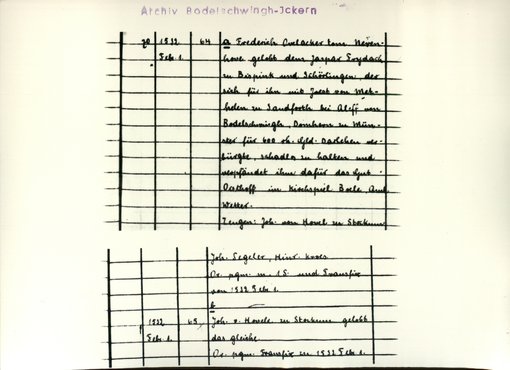 Archiv Bodelschwingh-Ickern
70 1532 64 a Frederich Ovelacker tom Neven-
Febr 1. hove gelobt dem Jaspar Frydach
zu Bispink und Schörlingen, der
sich für ihn mit Joest von
zu Sandforth bei Aleff von
Bodelschwingh, Domherrn zu Mün-
ster für 600 rh. Gld. Darlehen ver-
bürgte, schadlos zu halten und
verpfändet ihm dafür das Gut
Oesthoff im Kirchspiel Boele, Amt
Wetter.
Zeugen: Joh. von Hovel zu Stockum
Joh. Segeler, Hinr. Kroes
Or. pgm. m. 1 S. und Transfix
von 1532 Febr 1.
b
1532 65, Joh. v. Hovele zu Stockum gelobt
Febr 1. das gleiche
Or. pgm. Transfix zu 1532 Febr 1.